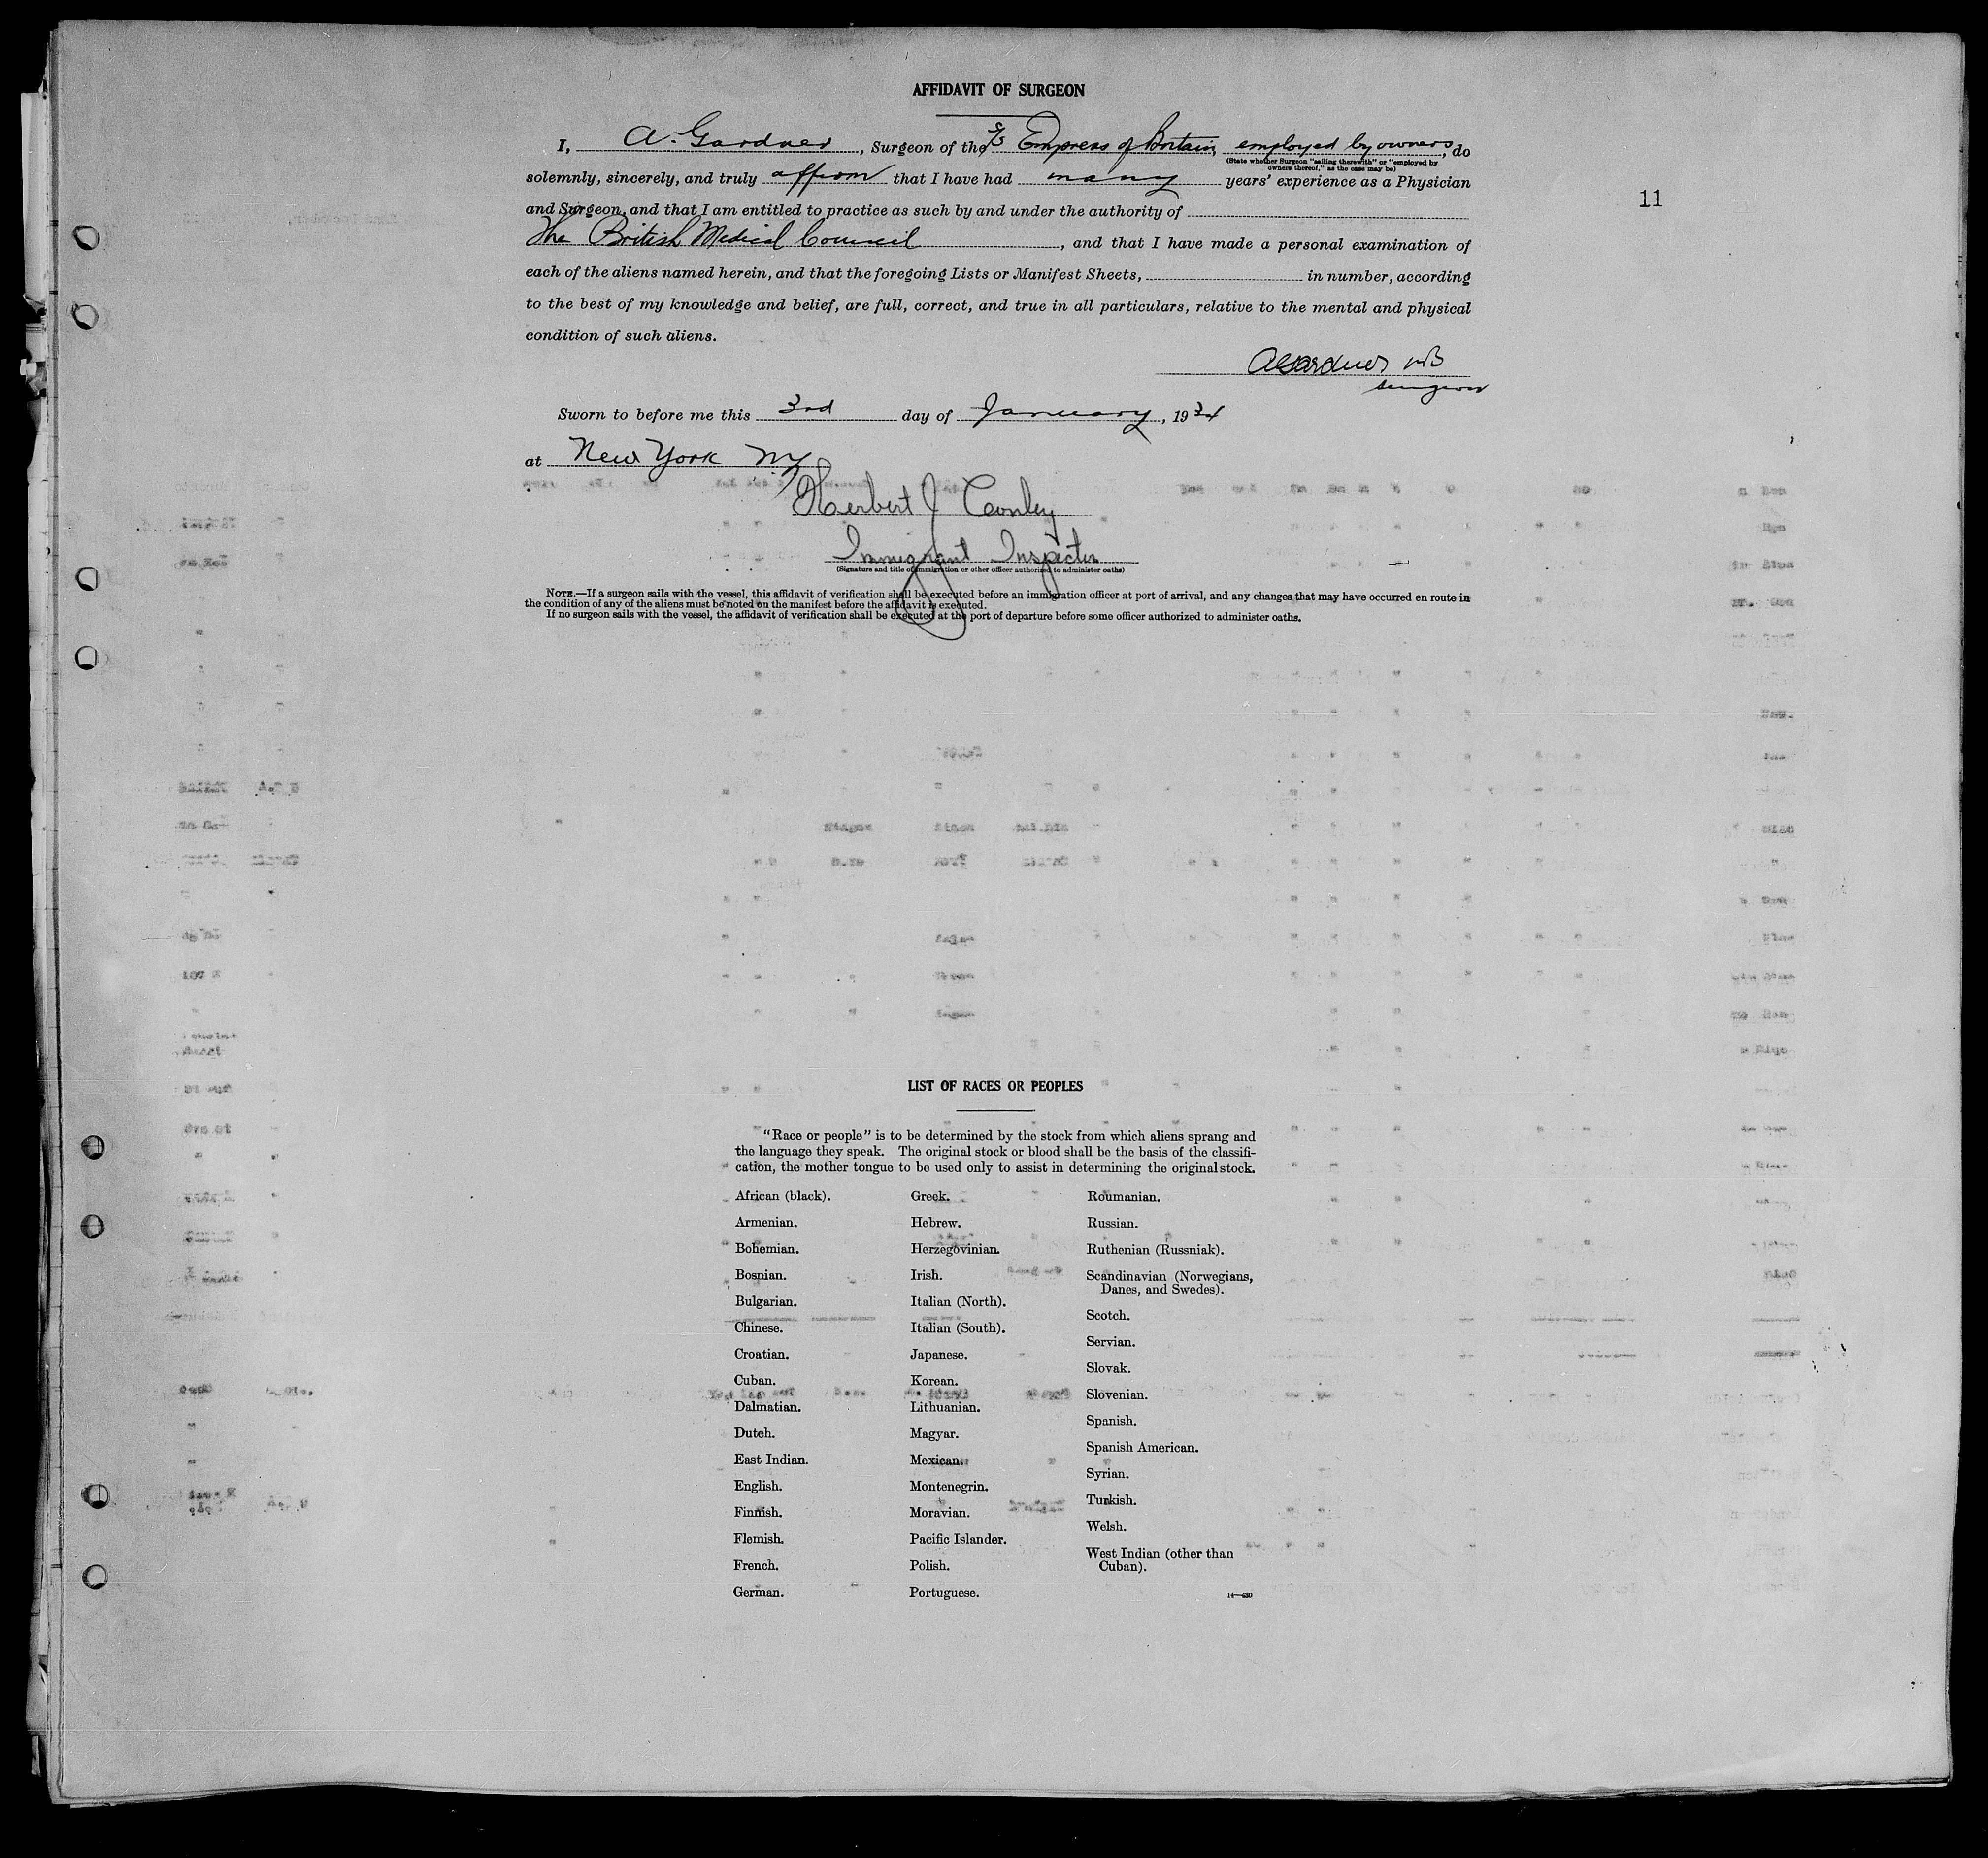 AFFIDAVIT OF SURGEON
I, A. Gardner, Surgeon of the S/S Empress of Britain, employed by owners, do
(State whether Surgeon "sailing therewith" or "employed by
owners thereof," as the case may be)
solemnly, sincerely, and truly affirm that I have had many years' experience as a Physician
11
and Surgeon, and that I am entitled to practice as such by and under the authority of
The British Medical Council, and that I have made a personal examination of
each of the aliens named herein, and that the foregoing Lists or Manifest Sheets, in number, according
to the best of my knowledge and belief, are full, correct, and true in all particulars, relative to the mental and physical
condition of such aliens.
A Gardner MB
Surgeon
Sworn to before me this 3rd day of January, 1934
at New York NY
Herbert J Conley
Immigrant Inspector
(Signature and title of immigration or other officer authorized to administer oaths)
NOTE.—If a surgeon sails with the vessel, this affidavit of verification shall be executed before an immigration officer at port of arrival, and any changes that may have occurred en route in
the condition of any of the aliens must be noted on the manifest before the affidavit is executed.
If no surgeon sails with the vessel, the affidavit of verification shall be executed at the port of departure before some officer authorized to administer oaths.
LIST OF RACES OR PEOPLES
"Race or people" is to be determined by the stock from which aliens sprang and
the language they speak. The original stock or blood shall be the basis of the classifi-
cation, the mother tongue to be used only to assist in determining the original stock.
African (black).
Armenian.
Bohemian.
Bosnian.
Bulgarian.
Chinese.
Croatian.
Cuban.
Dalmatian.
Dutch.
East Indian.
English.
Finnish.
Flemish.
French.
German.
Greek.
Hebrew.
Herzegovinian.
Irish.
Italian (North).
Italian (South).
Japanese.
Korean.
Lithuanian.
Magyar.
Mexican.
Montenegrin.
Moravian.
Pacific Islander.
Polish.
Portuguese.
Roumanian.
Russian.
Ruthenian (Russniak).
Scandinavian (Norwegians,
Danes, and Swedes).
Scotch.
Servian.
Slovak.
Slovenian.
Spanish.
Spanish American.
Syrian.
Turkish.
Welsh.
West Indian (other than
Cuban).
14—430